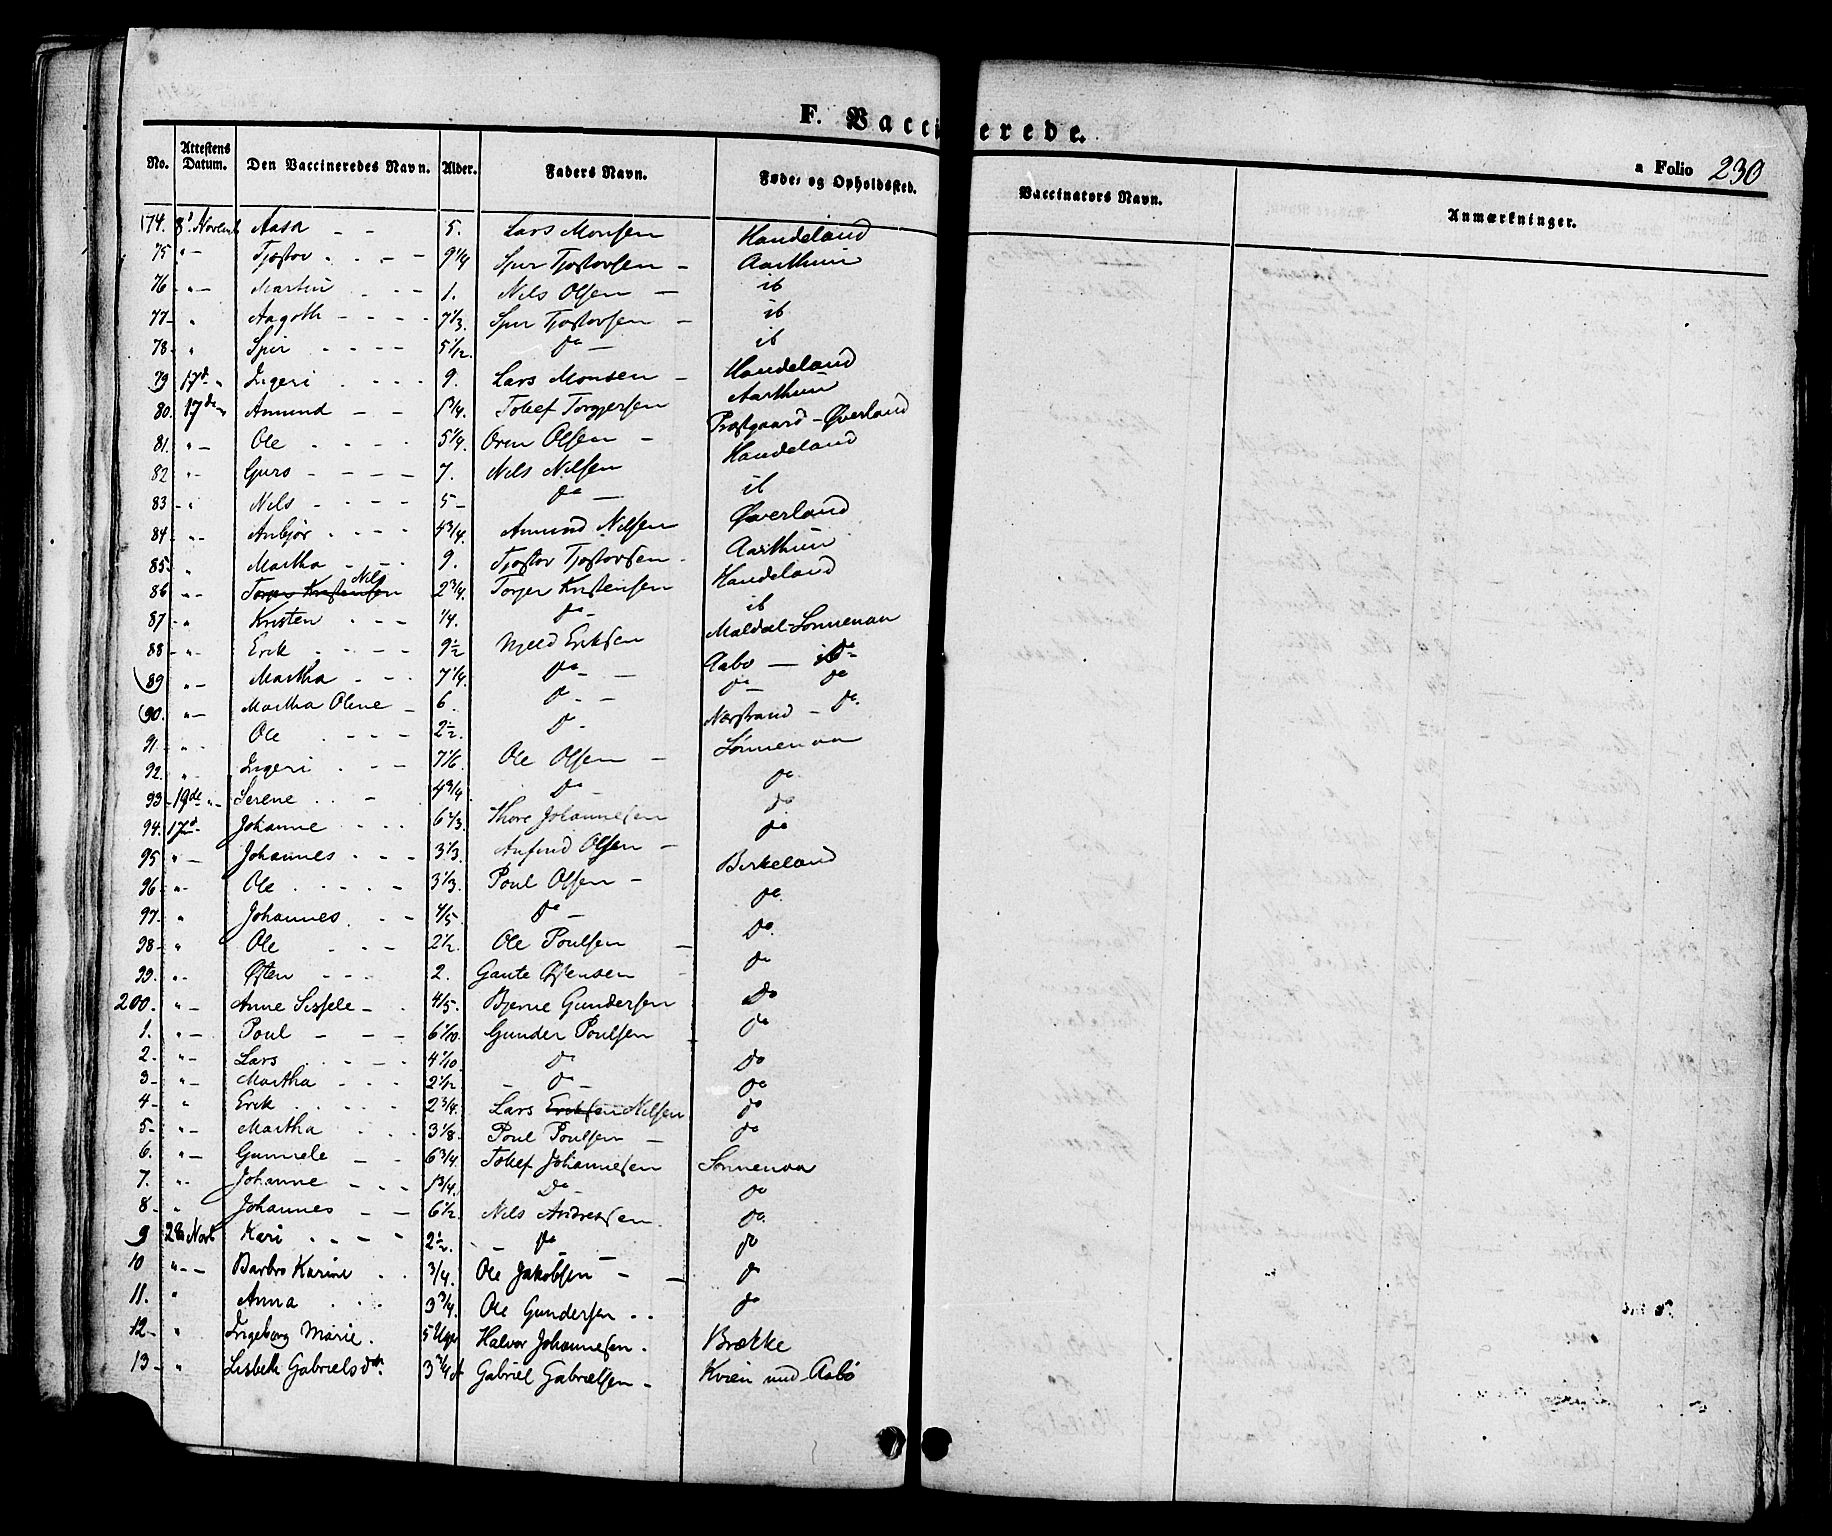 F. Vaccinerede.
a Folio 230
No. Attestens Datum. Den Vaccineredes Navn. Alder. Faders Navn. Føde- og Opholdssted. Vaccinators Navn. Anmærkninger.
174. 8' Novemb Aasa - - 5. Lars Monsen Handeland
75 " - Tjostov - - - 9 1/4 Spir Tjostovsen - Aarthun
76 - " - Martin - - - 1. Nils Olsen - ib
77 - " Aagoth - - - - 7 1/3. Spir Tjostovsen - ib
78 - " Spir - - - - 5 1/12. do - ib
79 17d " Ingeri - - - - 9. Lars Monsen - Handeland
80. 17de " Amund - - - 1 3/4. Tollef Torgersen Aarthun
81. " - Ole - - - - 5 1/4. Orm Olsen - Præstgaard - Øverland
82 " - Guro - - - - 7. Nils Nilsen Handeland
83 - " Nils - - - - 5 - do - ib
84 " - Anbjør - - - - 4 3/4. Amund Nilsen Øverland
85 - " Martha - - - 9. Tjostov Tjostovsen - Aarthun
86 " - Torger Kristensen Nils 2 3/4. Torger Kristensen Handeland
87 - " Kristen - - - 1/4. do - ib
88 - " - Erik - - - - 9 1/2 Njeld Eriksen Maldal - Sønnenaa
89 " - Martha - - - 7 1/4. do - - Aabø - do
90. " - Martha Oline - 6. do - - do - do
91. " - Ole - - - 2 1/2. do - Nærstrand - do
92. " - Ingeri - - - 7 1/6. Ole Olsen - Sønnenaa
93 - 19de " - Serene - - - 4 3/4. do - do
94. 17d - Johanne - - - 6 2/3. Thore Johannesen do
95 " - Johannes - - - 3 1/3. Anfind Olsen - do
96 " - Ole - - - - - 3 1/3. Poul Olsen - Birkeland
97 - " Johannes. - - 4/5. do - do.
98 - " Ole - - - 2 1/2. Ole Poulsen - do
99. " - Østen - - - 2. Gaute Østensen - do
200. " - Anne Sissele - - 4/5. Bjerne Gundersen Do
1. " - Poul - - - 6 1/10. Gunder Poulsen do
2. " - Lars - - - - 4 1/10. do do
3 - " - Martha - - - 2 1/2. - do - do
4 - " Erik - - - - 2 3/4. Lars Eriksen Nilsen do
5 - " - Martha - - - 3 1/8. Poul Poulsen - do
6. " - Gunnele - - 6 3/4. Tollef Johannesen Sønnenaa
7. " - Johanne - - - 1 3/4. Do - do
8 - " Johannes - - 6 1/2. Nils Andreasen. do.
9 28 Novb Kari - - - - 2 1/2. - do - do
10 " - - Barbro Karine - - 3/4. Ole Jakobsen - - do
11. " Anna - - - 3 3/4. Ole Gundersen - - do
12 - " Ingeborg Marie. 5 Uger Halvor Johannesen. Brække
13 - " Lisbeth Gabrielsdtr. 3 3/4 Gabriel Gabrielsen - Kvien und. Aabø